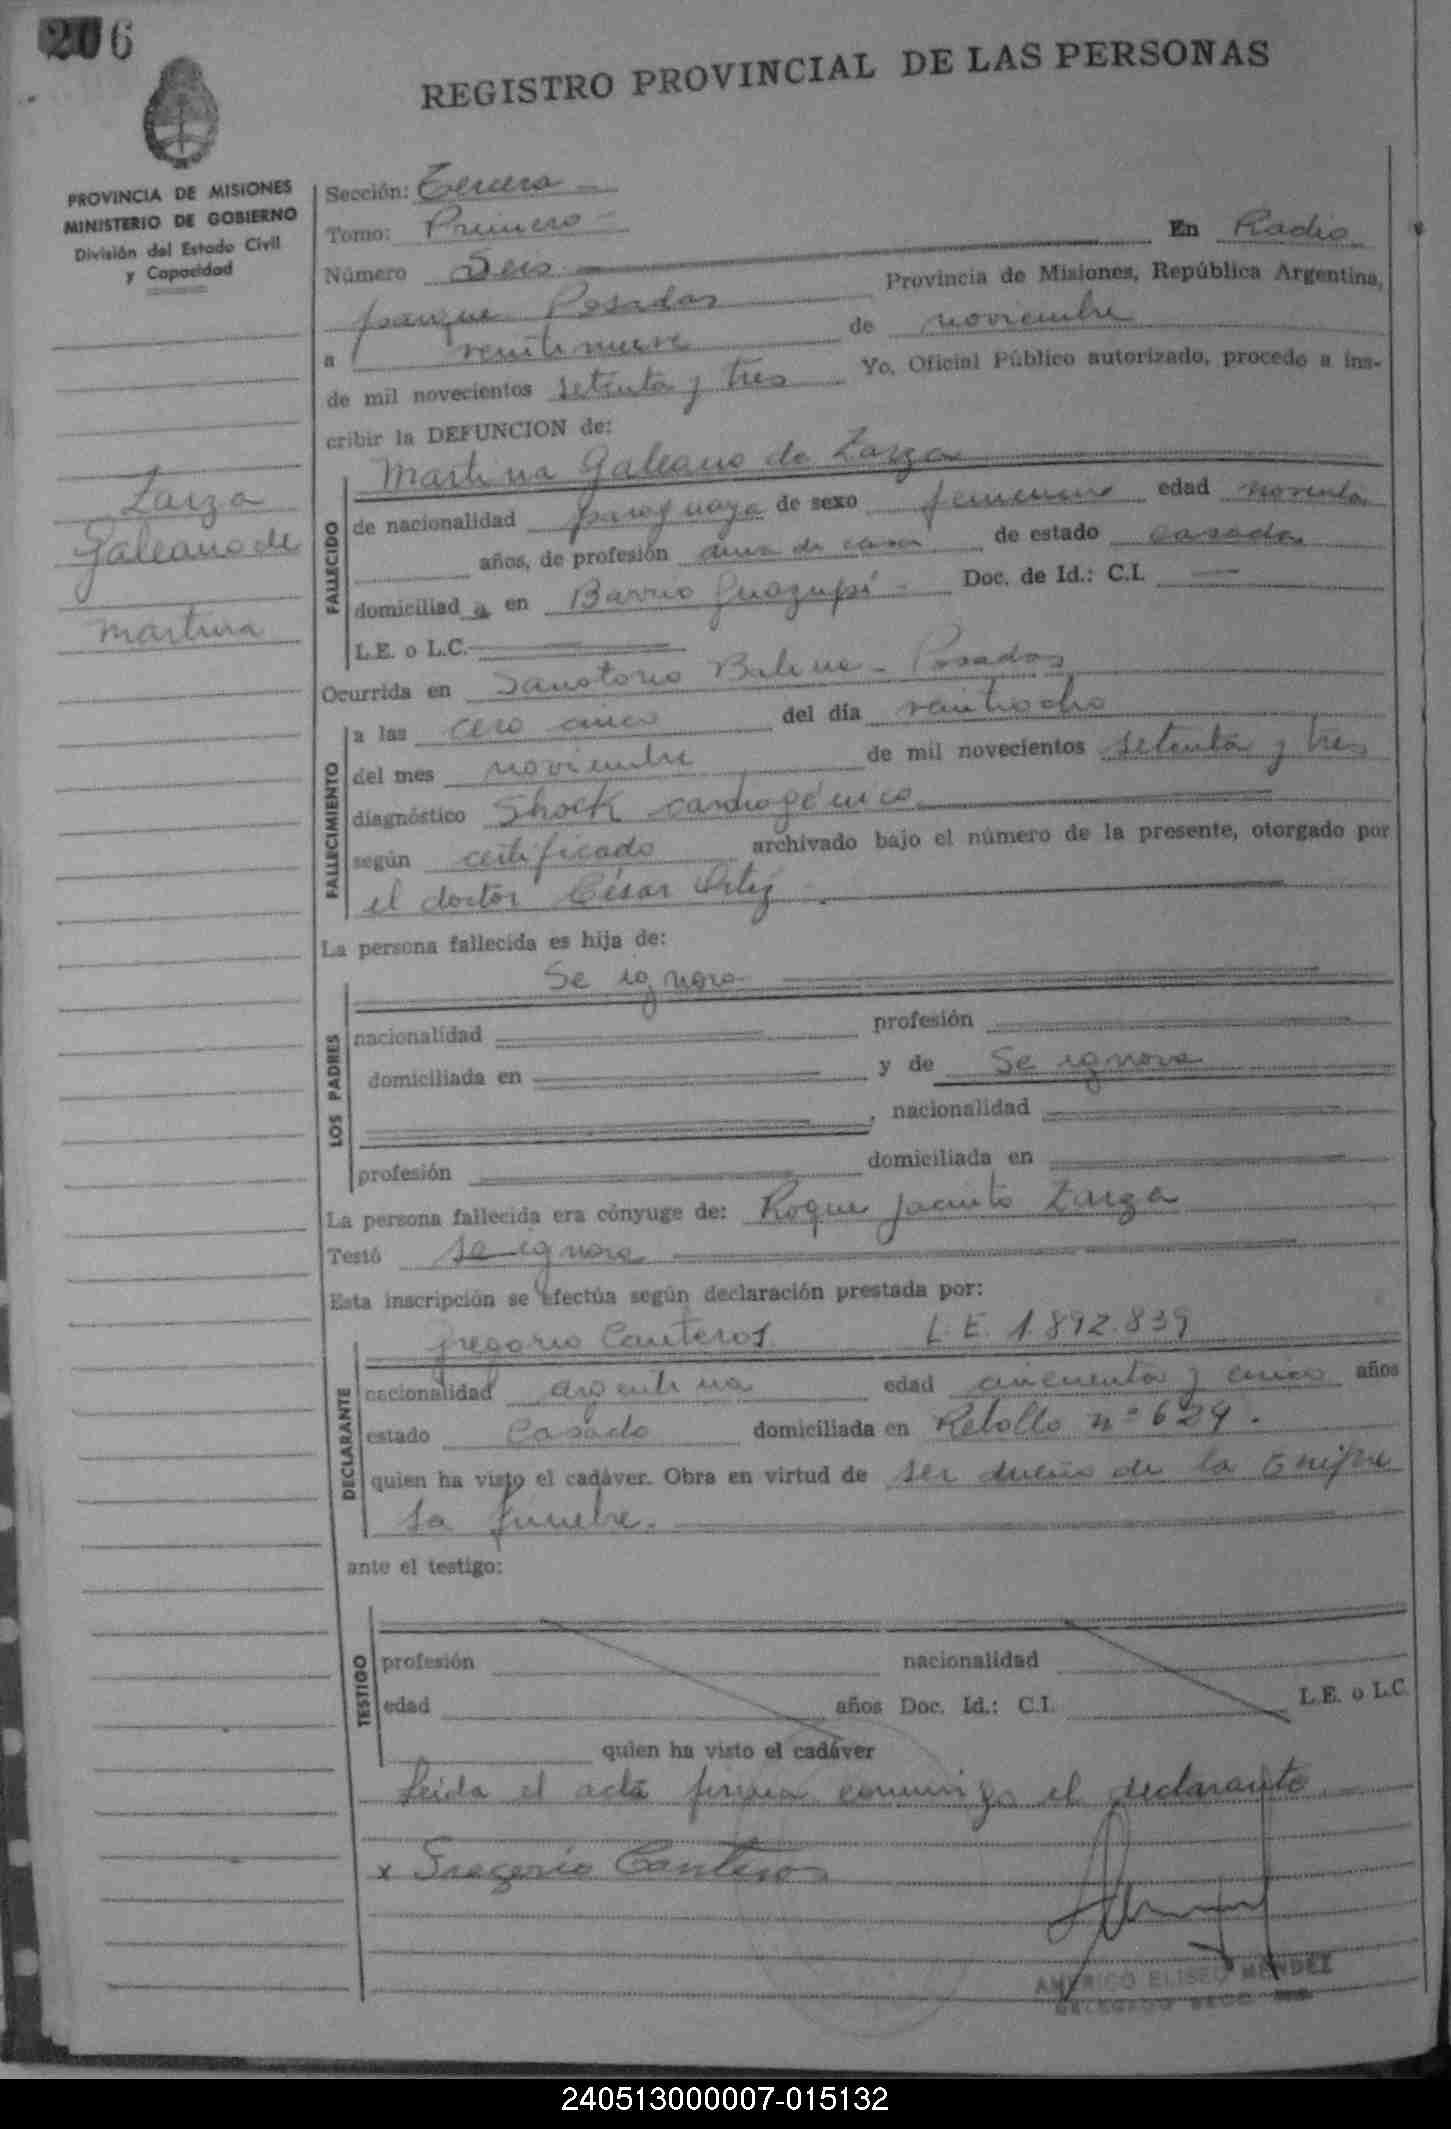 206
REGISTRO PROVINCIAL DE LAS PERSONAS
PROVINCIA DE MISIONES
MINISTERIO DE GOBIERNO
División del Estado Civil
y Capacidad
Zarza
Galeano de
Martina
Sección: Tercera
Tomo: Primero
Número Seis En Radio
parque Posadas Provincia de Misiones, República Argentina,
a veintinueve de noviembre
de mil novecientos setenta y tres Yo, Oficial Público autorizado, procedo a ins-
cribir la DEFUNCION de:
FALLECIDO
Martina Galeano de Zarza
de nacionalidad paraguaya de sexo femenino edad noventa
años, de profesión ama de casa de estado casada
domiciliad a en Barrio Doc. de Id.: C.I. —
L.E. o L.C.
Ocurrida en Sanatorio Posadas
FALLECIMIENTO
a las cero cinco del día veintiocho
del mes noviembre de mil novecientos setenta y tres
diagnóstico Shock cardiogénico
según certificado archivado bajo el número de la presente, otorgado por
el doctor César Ortiz
La persona fallecida es hija de:
LOS PADRES
Se ignora
nacionalidad profesión
domiciliada en y de Se ignora
, nacionalidad
profesión domiciliada en
La persona fallecida era cónyuge de: Roque Jacinto Zarza
Testó se ignora
Esta inscripción se efectúa según declaración prestada por:
DECLARANTE
Gregorio Canteros L.E. 1.892.839
nacionalidad argentina edad cincuenta y cinco años
estado Casado domiciliada en Rebollo nº 629.
quien ha visto el cadáver. Obra en virtud de ser dueño de la Empre
sa fúnebre.
ante el testigo:
TESTIGO
profesión nacionalidad
edad años Doc. Id.: C.I. L.E. o L.C.
quien ha visto el cadáver
Leida el acta firma conmigo el declarante
x Gregorio Canteros
AMERICO ELISEO MENDEZ
DELEGADO SECC.
240513000007-015132